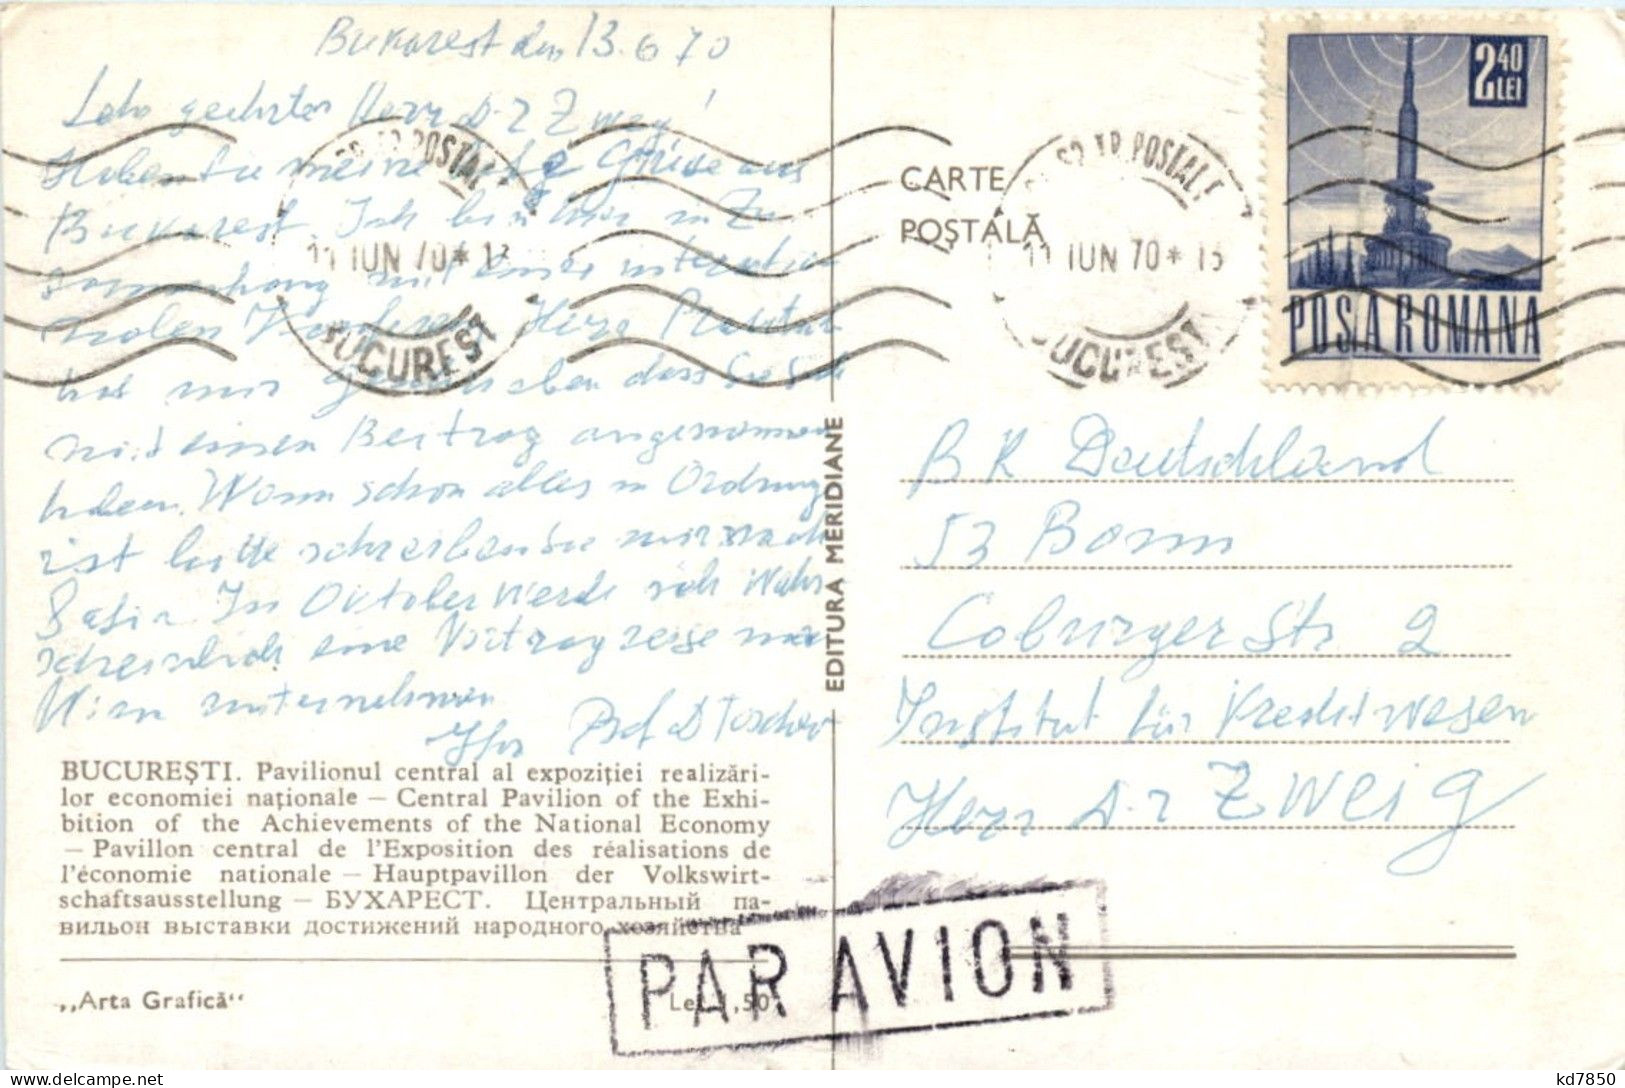 Bukarest den 13.6 70
Sehr geehrter Herr D.r Zweig!
Haben Sie meine Grüsse aus
Bukarest. Ich bin hier in Zu
sammenhang mit einer internatio
nalen Konferenz. Herr
hat mir geschrieben dass Sie
einen Beitrag angenommen
haben. Wann schon alles in Ordnung
ist bitte schreiben Sie mir nach
Sofia. In Oktober werde ich Wahr
scheinlich eine Vortragreise nach
Wien unternehmen
Ihr Prof D
BUCUREŞTI. Pavilionul central al expoziţiei realizări-
lor economiei naţionale – Central Pavilion of the Exhi-
bition of the Achievements of the National Economy
– Pavillon central de l'Exposition des réalisations de
l'économie nationale – Hauptpavillon der Volkswirt-
schaftsausstellung – БУХАРЕСТ. Центральный па-
вильон выставки достижений народного хозяйства
„Arta Grafică“
Lei 1,50
EDITURA MERIDIANE
CARTE
POŞTALĂ
TR. POSTAL
11 IUN 70 * 13
BUCUREST
TR. POSTAL
11 IUN 70 * 13
BUCUREST
2 40
LEI
POSTA ROMANA
B R Deutschland
53 Bonn
Coburger Str 2
Institut für Kreditwesen
Herr D.r Zweig
PAR AVION
kd7850